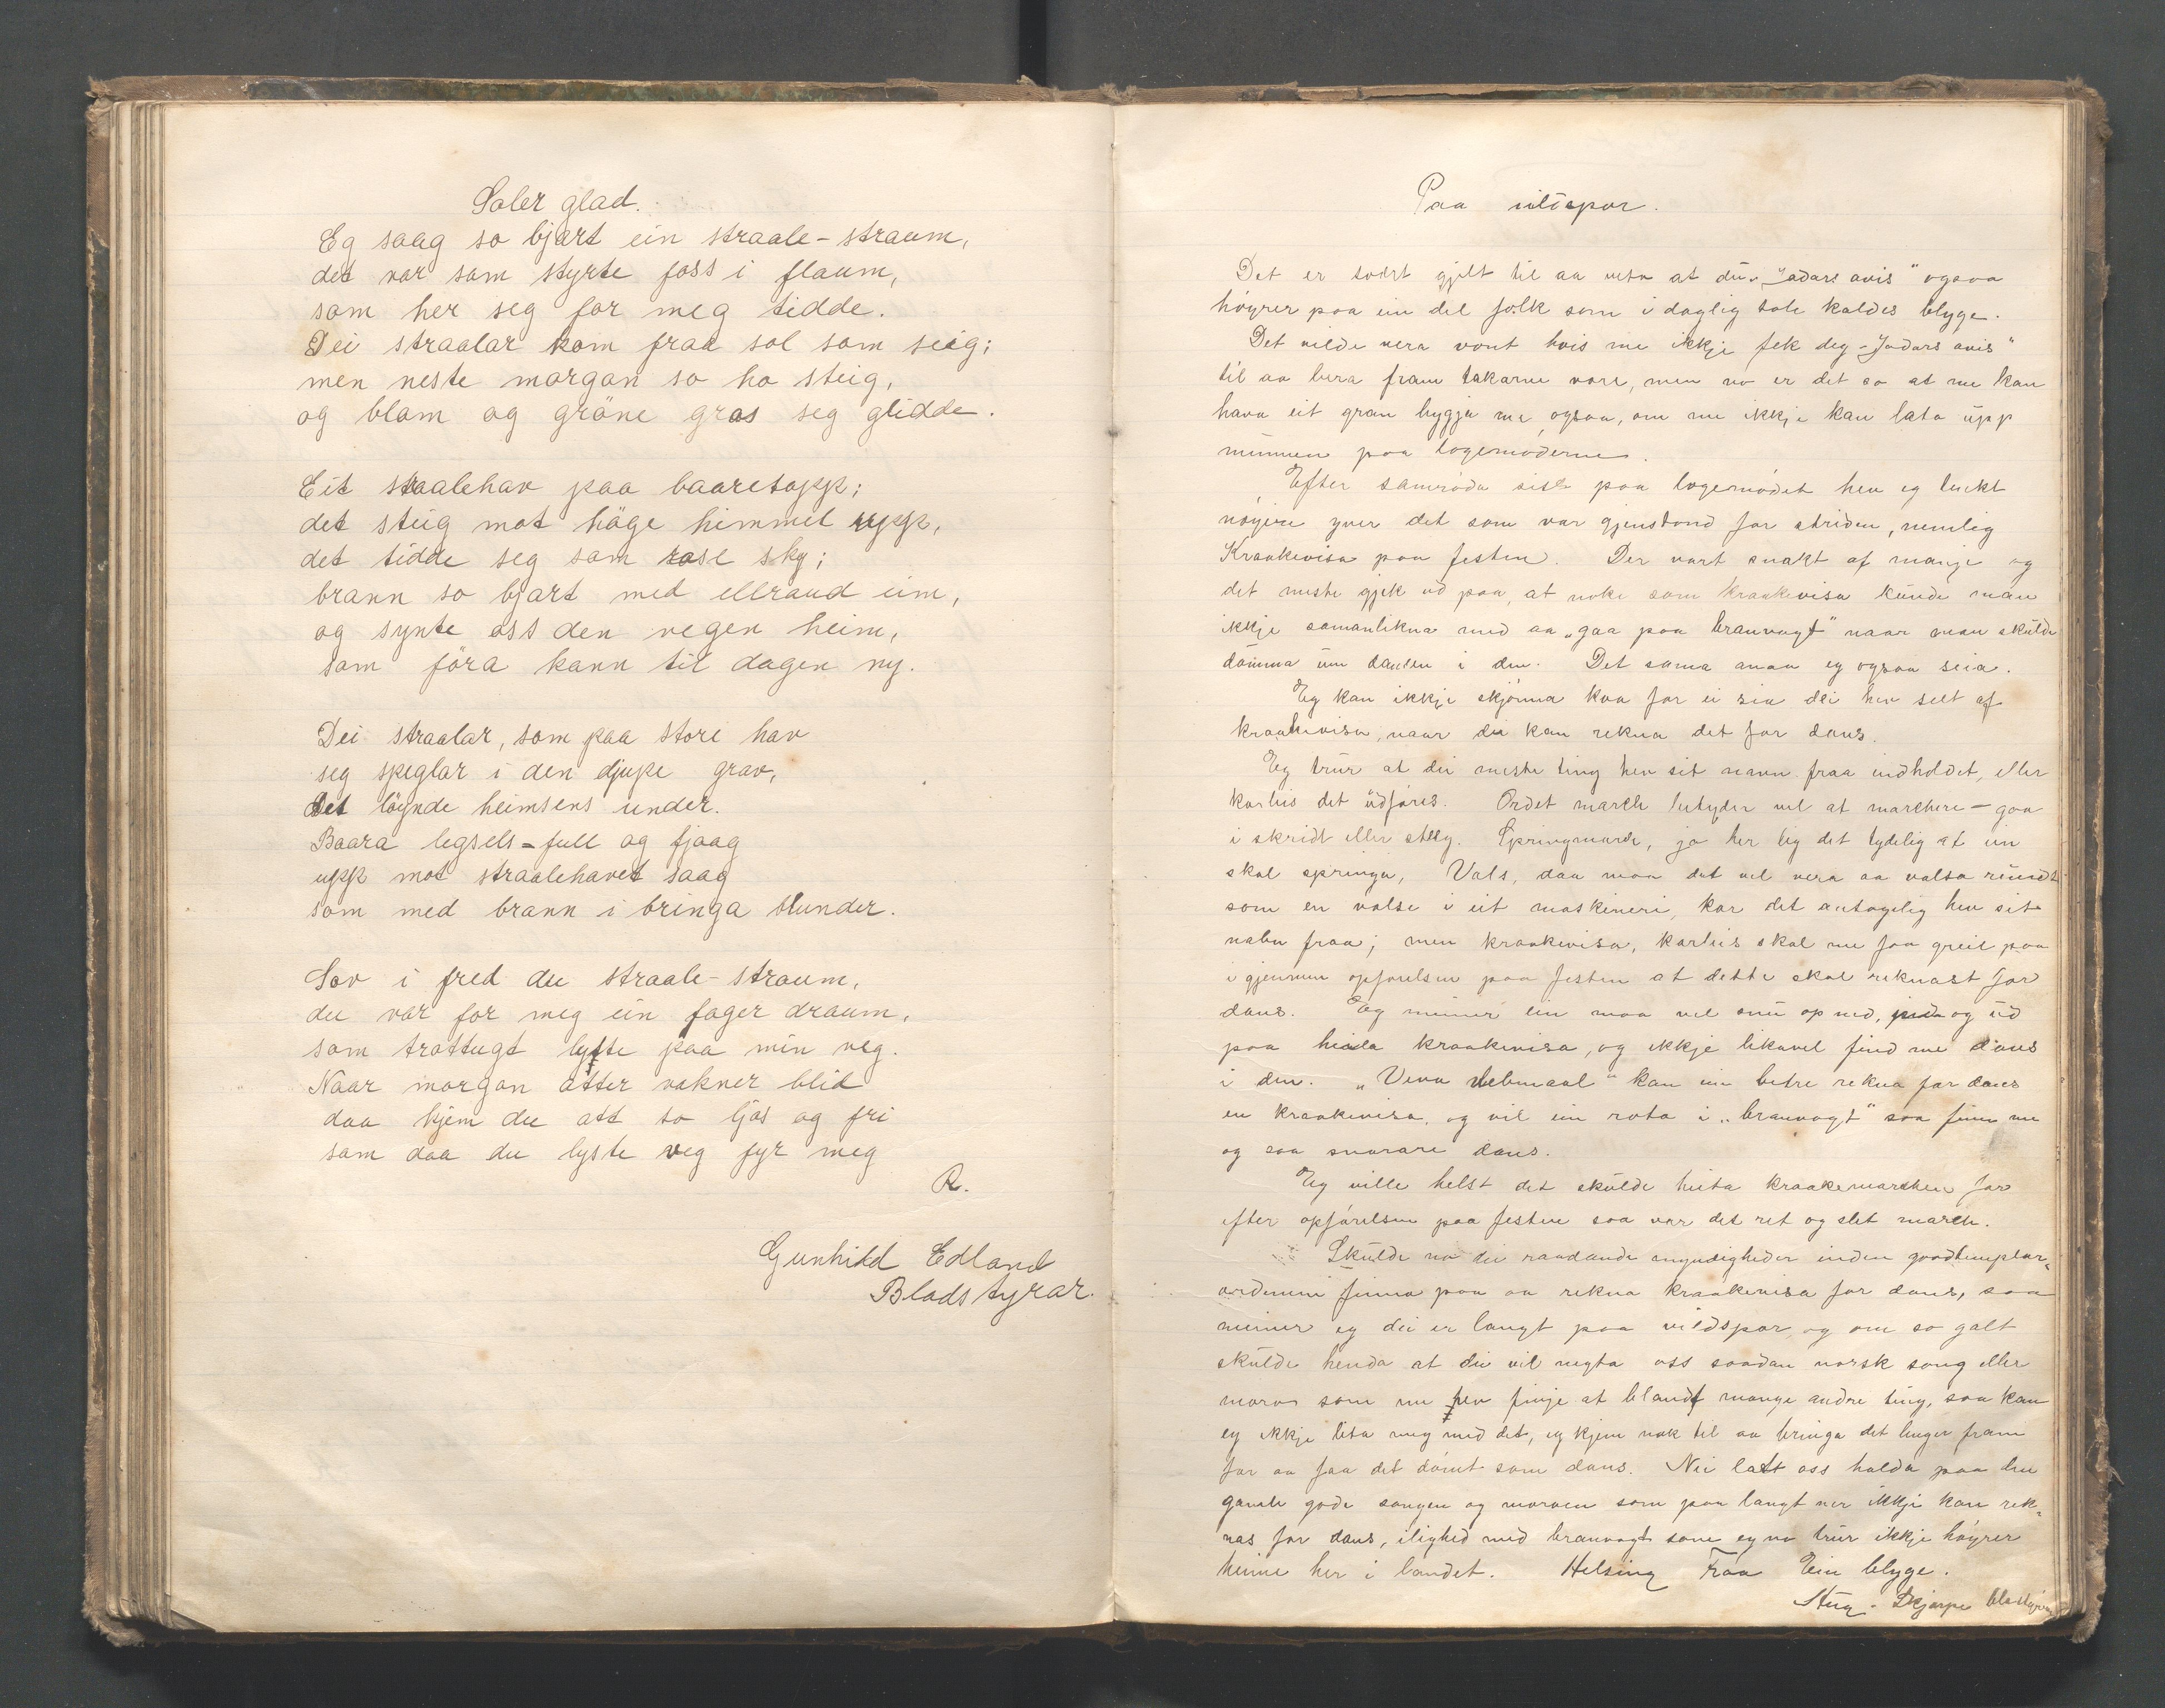 Soler glad.
Eg saag so bjart ein straale-straum,
det var som styrte foss i flaum,
som her seg for meg tidde.
Dei straalar kom fraa sol som seig;
men neste morgon so ho steig,
og blom og gröne gras seg glidde.
Eit straalehav paa baaretopp;
det steig mot höge himmel upp,
det tidde seg som rose sky;
brann so bjart med ellraud eim,
og synte oss den vegen heim,
som föra kann til dagen ny.
Dei straalar, som paa store hav
seg speglar i den djupe grav,
det löynde heimsens under.
Baara legsels-full og fjaag
upp mot straalehavet saag
som med brann i bringa stunder.
Sov i fred du straale-straum,
du var for meg ein fager draum,
som trottugt lyste paa min veg.
Naar morgon atter vakner blid
daa kjem du att so ljos og fri
som daa du lyste veg fyr meg
R.
Gunhild Edland
Bladstyrar.
Paa vildspor.
Det er svert gjilt til aa veta at du „Jadars avis" ogsaa
höyrer paa ein del folk som i daglig tale kaldes blyge.
Det vilde vera vont hvis me ikkje fek deg „Jadars avis"
til aa bera fram takarne vore, men no er det so at me kan
hava eit gran hyggja me ogsaa, om me ikkje kan lata upp
munnen paa logemöderne.
Efter samröda sist paa logemödet hev eg tenkt
nöyere yver det som var gjenstand for striden, nemlig
Kraakevisa paa festen. Der vart snakt af mange og
det meste gjek ud paa, at noke som kraakevisa kunde man
ikkje samanlikna med aa „gaa paa branvagt" naar man skulde
dömma um dansen i den. Det sama maa eg ogsaa seia.
Eg kan ikkje skjönna kva for ei sia dei hev seet af
kraakevisa, naar dei kan rekna det for dans.
Eg trur at dei meste ting hev sit navn fraa indholdet, eller
korleis det udföres. Ordet march betyder vel at marchere - gaa
i skridt eller steg. Springmarch, ja her lig det tydelig at ein
skal springa, Vals, daa maa det vel vera aa valsa rundt
som en valse i eit maskineri, kor det antagelig hev sit
nabn fraa; men kraakevisa, korleis skal me faa greie paa
i gjennem opförelsen paa festen at dette skal reknast for
dans. Eg meiner ein maa vel snu op ned, ind og ud
paa heila kraakevisa, og ikkje likavel find me dans
i den. „Veva vebmaal" kan ein betre rekna for dans
en kraakevisa, og vil ein rota i „branvagt" saa finn me
og saa snarare dans.
Eg ville helst det skulde heita kraakemarchen for
efter opförelsen paa festen saa var det ret og slet march.
Skulde no dei raadande myndigheder inden goodtemplar-
ordenen finna paa aa rekna kraakevisa for dans, saa
meiner eg dei er langt paa vildspor, og om so galt
skulde henda at dei vil negta oss saadan norsk song eller
moro som me hev finje at blandt mange andre ting, saa kan
eg ikkje lata meg med det, eg kjem nok til aa bringa det lenger fram
for aa faa det dömt som dans. Nei latt oss halda paa den
gamle gode songen og moroen som paa langt ner ikkje kan rek-
nas for dans, ilighed med branvagt som eg no trur ikkje höyrer
heime her i landet. Helsing fraa Ein blyge.
Skjærpe bladstyrar